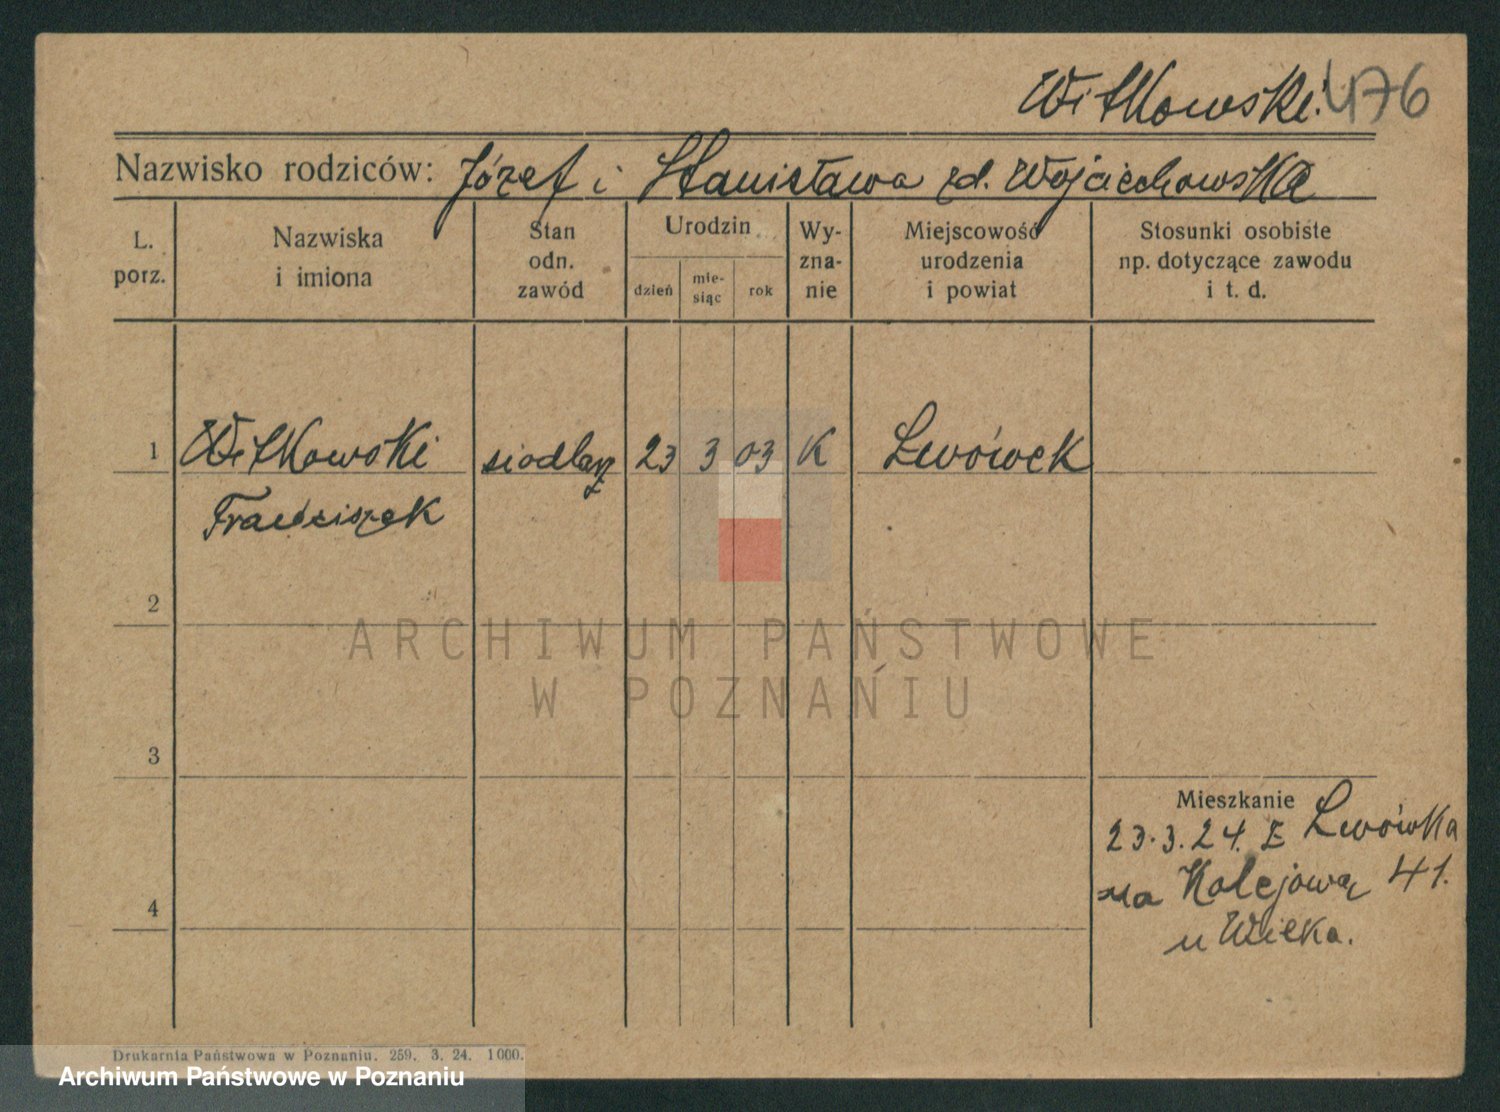 Witkowski. 476
Nazwisko rodziców: Józef i Stanisława zd. Wojciechowska
L. porz.
Nazwiska i imiona
Stan odn. zawód
Urodzin
dzień
mie-
siąc
rok
Wy-
zna-
nie
Miejscowość urodzenia i powiat
Stosunki osobiste np. dotyczące zawodu i t. d.
1 Witkowski siodlarz 23 3 03 K Lwówek
Franciszek
2
ARCHIWUM PAŃSTWOWE
W POZNANIU
3
Mieszkanie
23.3.24. z Lwówka
na Kolejową 41.
4
u Wilka.
Drukarnia Państwowa w Poznaniu. 259. 3. 24. 1000.
Archiwum Państwowe w Poznaniu